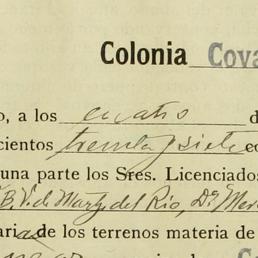 Colonia Cova
o, a los cuatro d
cientos treinta y siete co
una parte los Sres. Licenciados
B. V. de Martz. del Rio, Dr. Mar
aria de los terrenos materia de